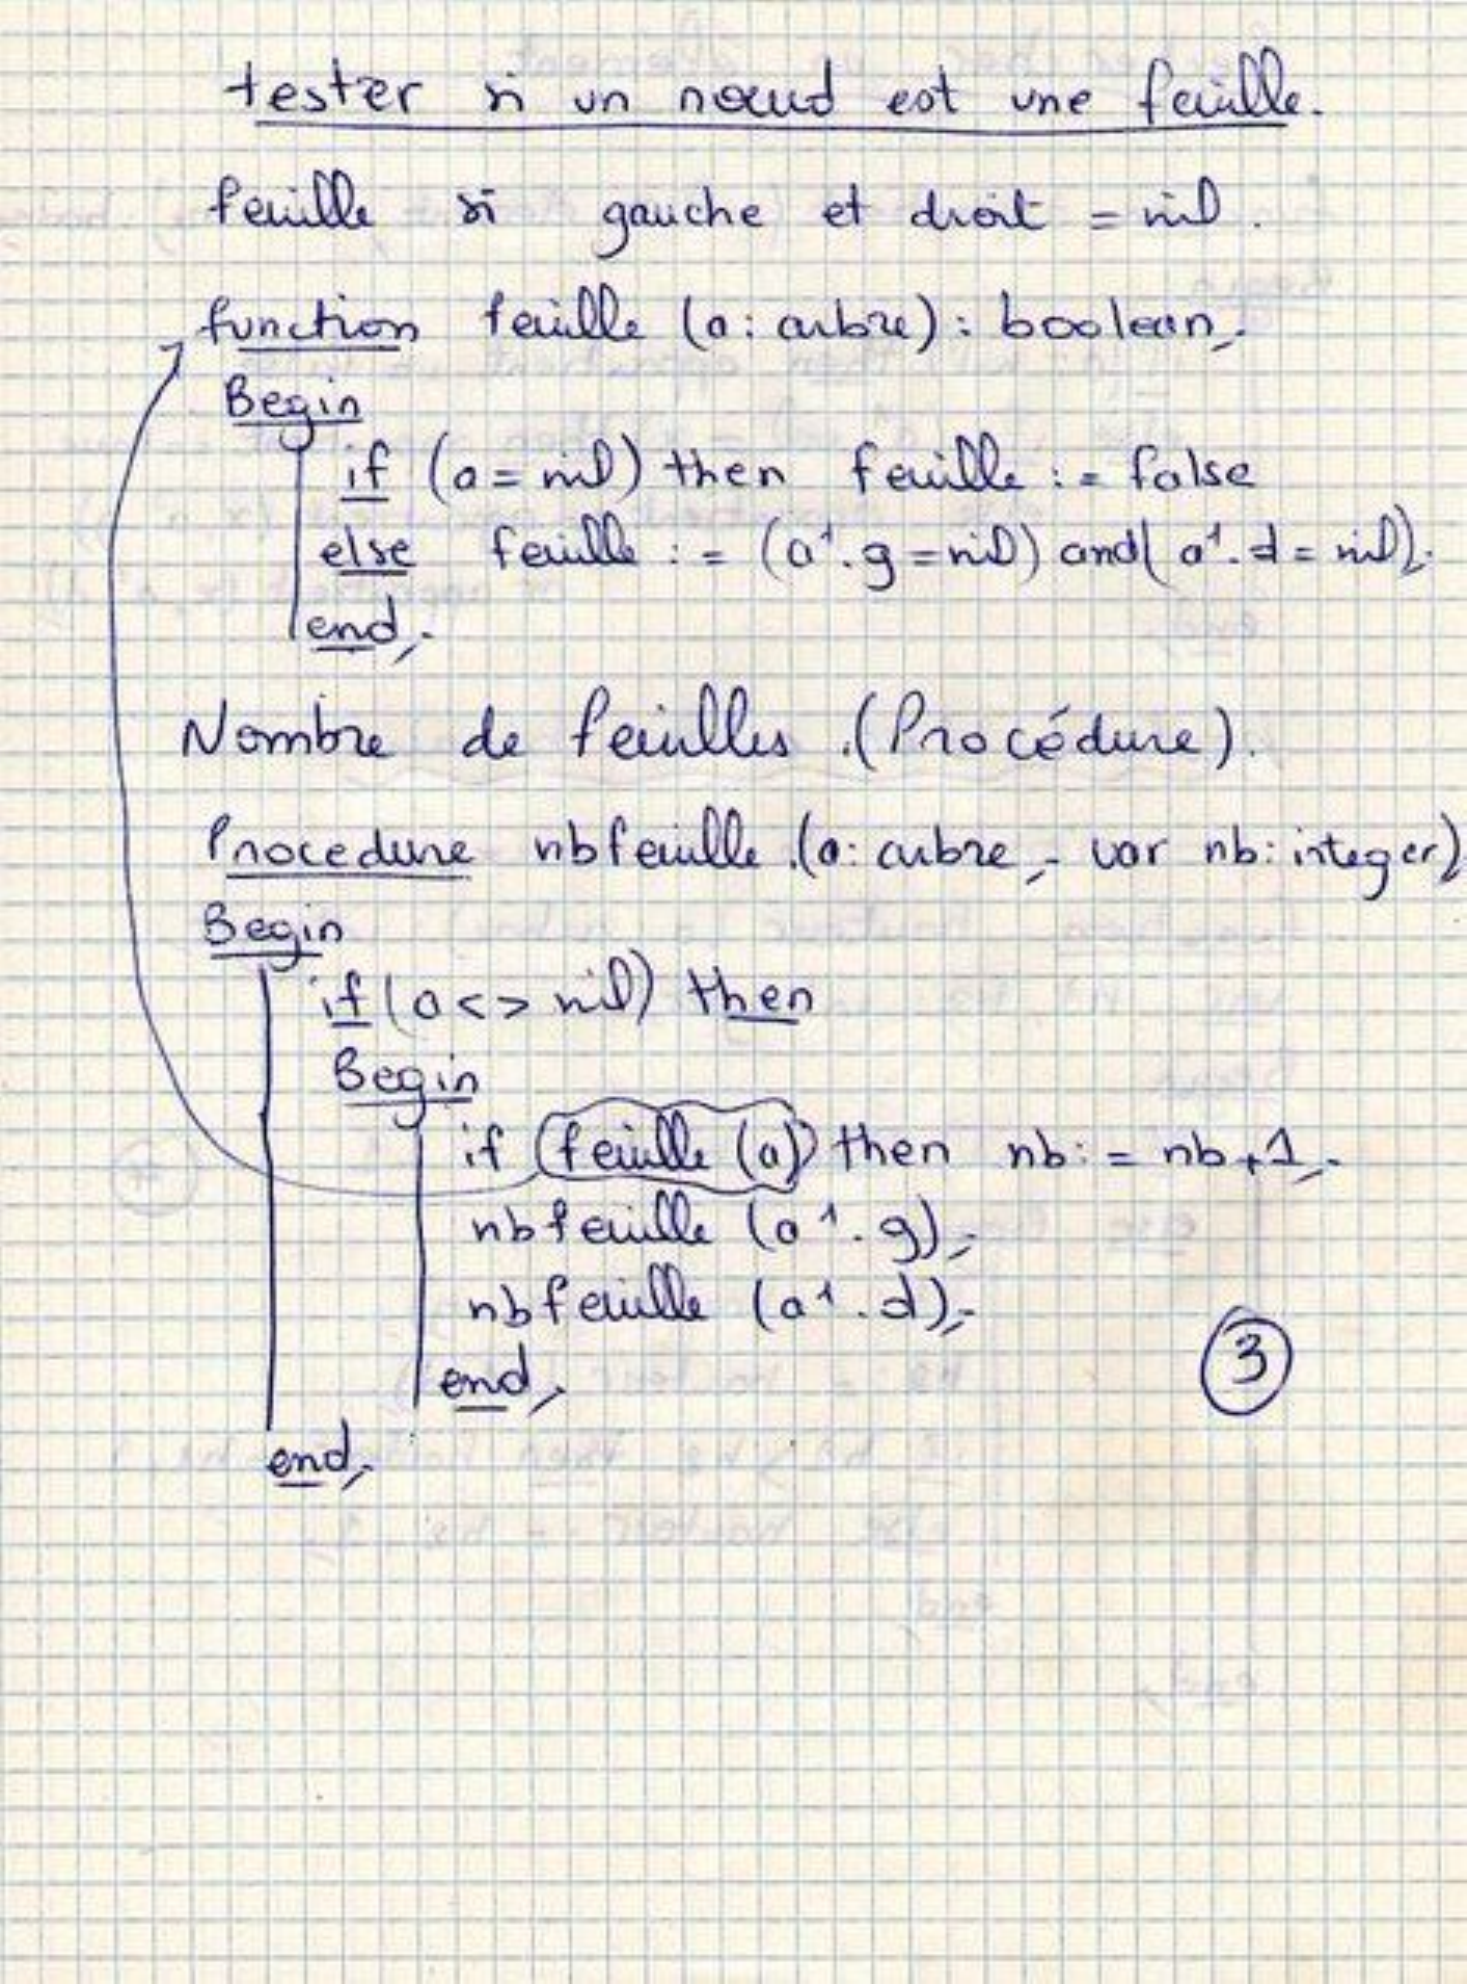 tester si un nœud est une feuille.
feuille si gauche et droit = nil.
function feuille (a: arbre): boolean;
Begin
if (a = nil) then feuille := false
else feuille := (a↑.g = nil) and (a↑.d = nil);
end;
Nombre de feuilles. (Procédure).
Procedure nbfeuille (a: arbre; var nb: integer)
Begin
if (a <> nil) then
Begin
if (feuille (a)) then nb := nb + 1;
nbfeuille (a↑.g);
nbfeuille (a↑.d);
end;
3
end;